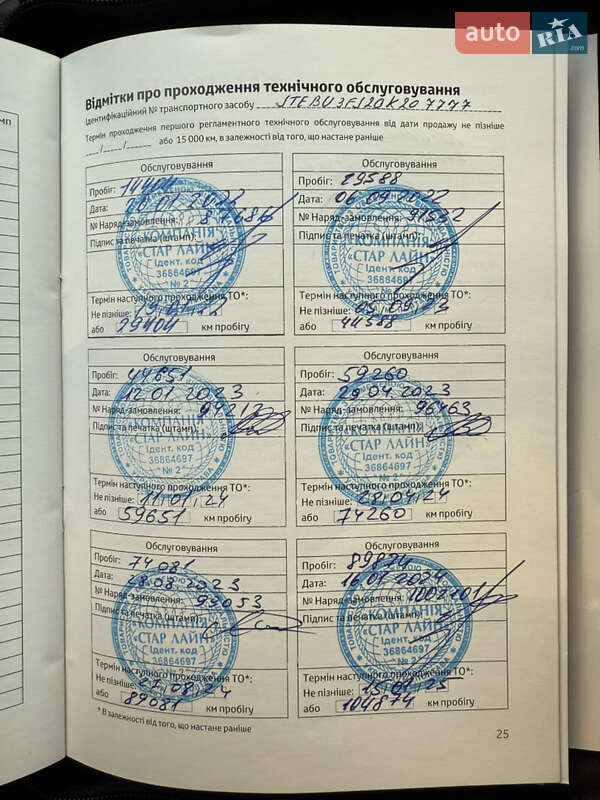 auto RIA.com
мп
Відмітки про проходження технічного обслуговування
Ідентифікаційний № транспортного засобу JTEBU3FJ20K207777
Термін проходження першого регламентного технічного обслуговування від дати продажу не пізніше
__/__/__ або 15 000 км, в залежності від того, що настане раніше
Обслуговування
Пробіг: 14404
Дата: 20.01.2022
№ Наряд-замовлення:
Підпис та печатка (штамп):
КОМПАНІЯ
«СТАР ЛАЙН»
Ідент. код
36864697
№ 2
Термін наступного проходження ТО*:
Не пізніше:
або 29404 км пробігу
Обслуговування
Пробіг: 29588
Дата: 06.09.2022
№ Наряд-замовлення:
Підпис та печатка (штамп):
«КОМПАНІЯ
«СТАР ЛАЙН»
Ідент. код
36864697
№ 2
Термін наступного проходження ТО*:
Не пізніше: 05.09.23
або 44588 км пробігу
Обслуговування
Пробіг: 44651
Дата: 12.01.2023
№ Наряд-замовлення: 94213
Підпис та печатка (штамп):
«КОМПАНІЯ
«СТАР ЛАЙН»
Ідент. код
36864697
№ 2
Термін наступного проходження ТО*:
Не пізніше: 11.01.24
або 59651 км пробігу
Обслуговування
Пробіг: 59260
Дата: 29.04.2023
№ Наряд-замовлення: 96463
Підпис та печатка (штамп):
«КОМПАНІЯ
«СТАР ЛАЙН»
Ідент. код
36864697
№ 2
Термін наступного проходження ТО*:
Не пізніше: 28.04.24
або 74260 км пробігу
Обслуговування
Пробіг: 74081
Дата: 28.08.2023
№ Наряд-замовлення: 99053
Підпис та печатка (штамп):
КОМПАНІЯ
«СТАР ЛАЙН»
Ідент. код
36864697
№ 2
Термін наступного проходження ТО*:
Не пізніше: 27.08.24
або 89081 км пробігу
Обслуговування
Пробіг: 89874
Дата: 16.01.2024
№ Наряд-замовлення: 1002201
Підпис та печатка (штамп):
КОМПАНІЯ
«СТАР ЛАЙН»
Ідент. код
36864697
№ 2
Термін наступного проходження ТО*:
Не пізніше: 15.01.25
або 104874 км пробігу
* В залежності від того, що настане раніше
25